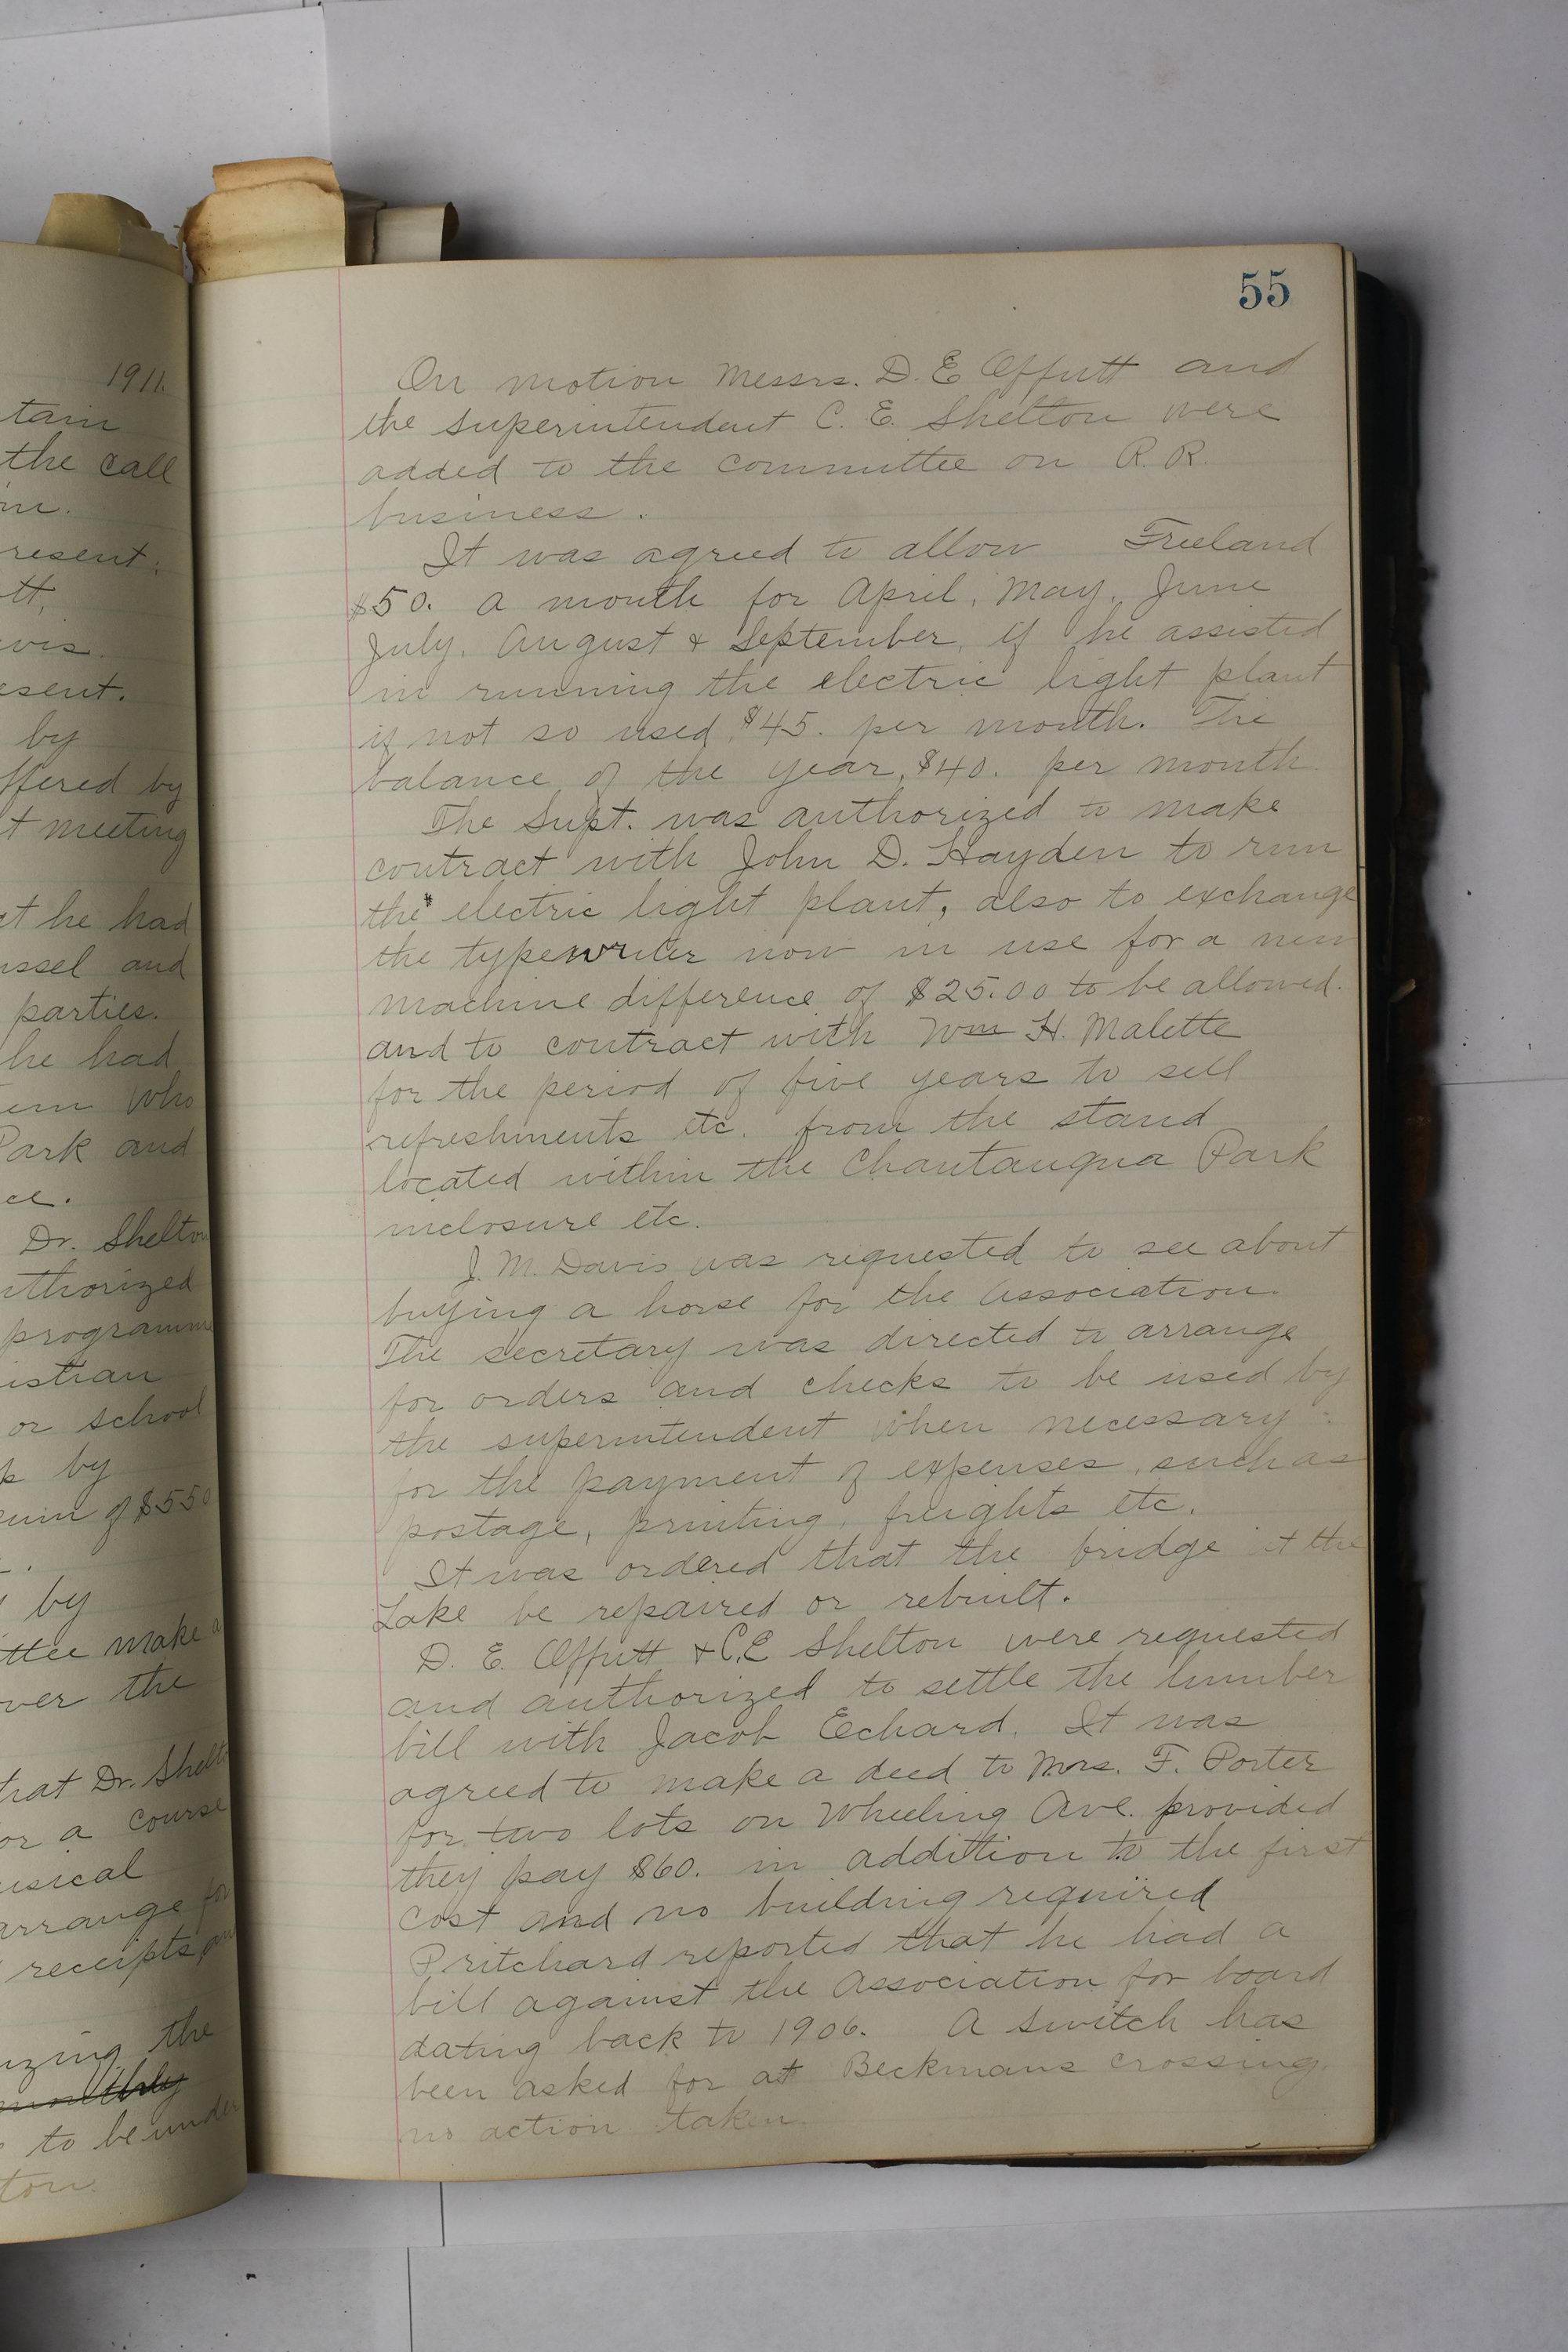 1911.
tain
the call
resent.
tt,
vis.
esent.
by
ffered by
t meeting
ct he had
ussel and
parties.
he had
em who
Park and
ce.
Dr. Shelton
uthorized
programme
istian
or school
by
sum of $550
by
ttee make a
over the
that Dr. Shelt
or a course
usical
arrange for
receipts an
izing the
monthly
to be under
ton.
55
On motion Messrs. D. E. Offutt and
the superintendent C. E. Shelton were
added to the committee on R. R.
business.
It was agreed to allow Freeland
$50. a month for April, May, June
July, August & September, if he assisted
in running the electric light plant
if not so used $45. per month. The
balance of the year, $40. per month.
The Supt. was authorized to make
contract with John D. Hayden to run
the electric light plant, also to exchange
the typewriter now in use for a new
machine difference of $25.00 to be allowed.
and to contract with Wm H. Malette
for the period of five years to sell
refreshments etc. from the stand
located within the Chautauqua Park
inclosure etc.
J. M. Davis was requested to see about
buying a horse for the Association.
The secretary was directed to arrange
for orders and checks to be used by
the superintendent when necessary
for the payment of expenses, such as
postage, printing, freights etc.
It was ordered that the bridge at the
Lake be repaired or rebuilt.
D. E. Offutt & C. E. Shelton were requested
and authorized to settle the lumber
bill with Jacob Echard. It was
agreed to make a deed to Mrs. F. Porter
for two lots on Wheeling Ave. provided
they pay $60. in addittion to the first
cost and no building required
Pritchard reported that he had a
bill against the Association for board
dating back to 1906. A switch has
been asked for at Beckmans crossing
no action taken.